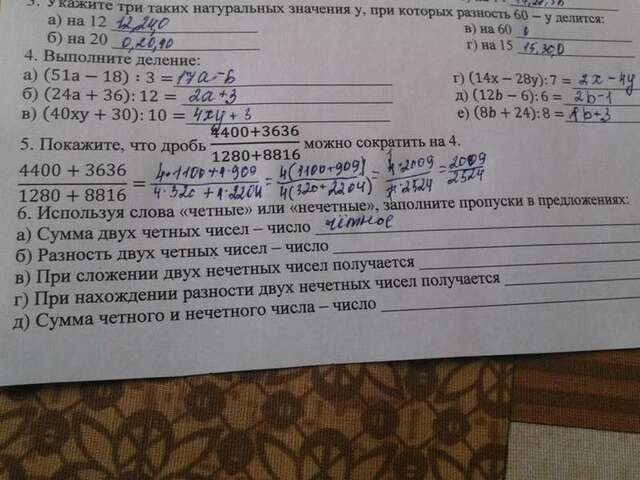 3. Укажите три таких натуральных значения у, при которых разность 60 – у делится:
а) на 12 12,24,0
в) на 60 0
б) на 20 0,20,40
г) на 15 15,30,0
4. Выполните деление:
а) (51a – 18) : 3 = 17a – 6
г) (14x – 28y): 7 = 2x – 4y
б) (24a + 36): 12 = 2a + 3
д) (12b – 6): 6 = 2b – 1
в) (40xy + 30): 10 = 4xy + 3
е) (8b + 24): 8 = 1b + 3
5. Покажите, что дробь 4400+3636 / 1280+8816 можно сократить на 4.
4400 + 3636 / 1280 + 8816 = 4·1100+4·909 / 4·320+4·2204 = 4(1100+909) / 4(320+2204) = 4·2009 / 4·2524 = 2009 / 2524
6. Используя слова «четные» или «нечетные», заполните пропуски в предложениях:
а) Сумма двух четных чисел – число чётное
б) Разность двух четных чисел – число
в) При сложении двух нечетных чисел получается
г) При нахождении разности двух нечетных чисел получается
д) Сумма четного и нечетного числа – число